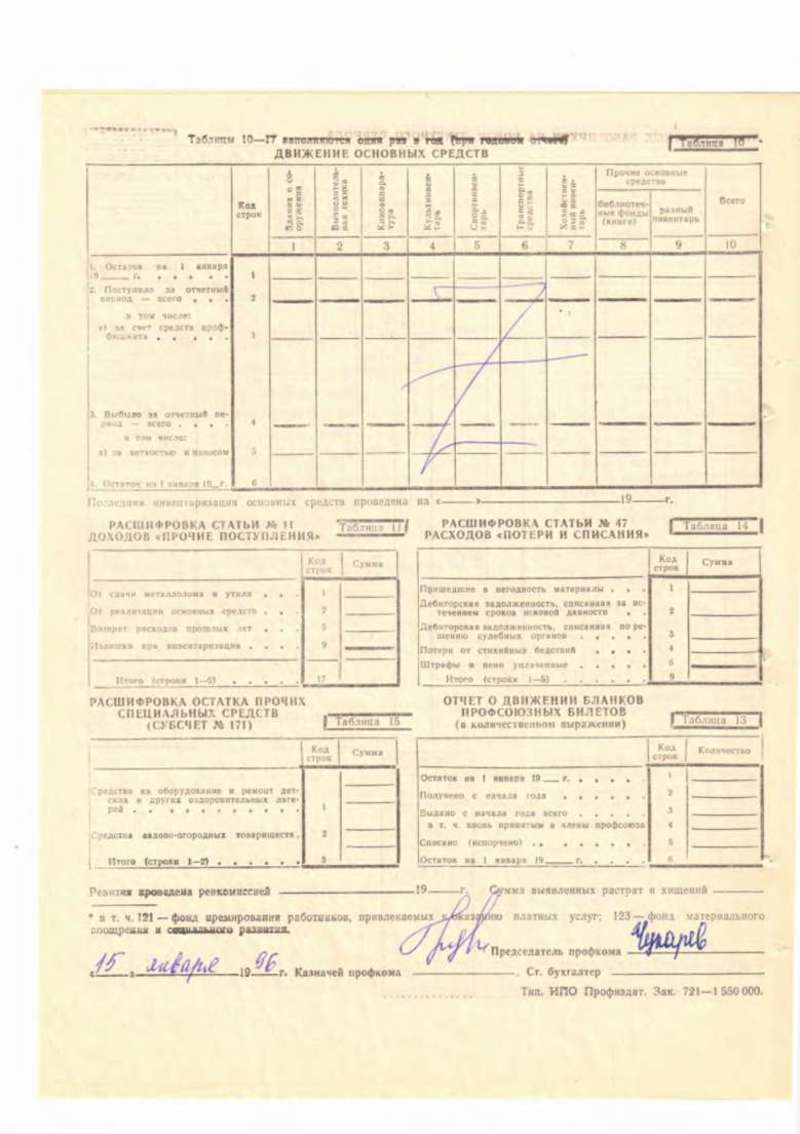 Таблицы 10—17 заполняются один раз в год (при годовом отчете)
Таблица 10
ДВИЖЕНИЕ ОСНОВНЫХ СРЕДСТВ
Код строк
Здания и сооружения
Вычислительная техника
Киноаппаратура
Культинвентарь
Спортинвентарь
Транспортные средства
Хозяйственный инвентарь
Прочие основные средства
библиотечные фонды (книги)
разный инвентарь
Всего
1 2 3 4 5 6 7 8 9 10
1. Остаток на 1 января
19 г. . . . . . 1
2. Поступило за отчетный
период — всего . . . 2
в том числе:
а) за счет средств проф-
бюджета . . . . . 3
3. Выбыло за отчетный пе-
риод — всего . . . . 4
в том числе:
а) за ветхостью и износом 5
4. Остаток на 1 января 19 г. 6
Последняя инвентаризация основных средств проведена на « » 19 г.
РАСШИФРОВКА СТАТЬИ № 11
ДОХОДОВ «ПРОЧИЕ ПОСТУПЛЕНИЯ»
Таблица 11
Код строк
Сумма
От сдачи металлолома и утиля . . . 1
От реализации основных средств . . . 2
Возврат расходов прошлых лет . . . 5
Излишки при инвентаризации . . . . 9
Итого (строки 1—9) . . . . . 17
РАСШИФРОВКА СТАТЬИ № 47
РАСХОДОВ «ПОТЕРИ И СПИСАНИЯ»
Таблица 14
Код строк
Сумма
Пришедшие в негодность материалы . . . 1
Дебиторская задолженность, списанная за ис-
течением сроков исковой давности . . 2
Дебиторская задолженность, списанная по ре-
шению судебных органов . . . . . 3
Потери от стихийных бедствий . . . . 4
Штрафы и пени уплаченные . . . . . 5
Итого (строки 1—5) . . . . . . 9
РАСШИФРОВКА ОСТАТКА ПРОЧИХ
СПЕЦИАЛЬНЫХ СРЕДСТВ
(СУБСЧЕТ № 171)
Таблица 15
Код строк
Сумма
Средства на оборудование и ремонт дет-
ских и других оздоровительных лаге-
рей . . . . . . . . . . 1
Средства садово-огородных товариществ . 2
Итого (строки 1—2) . . . . . . 3
ОТЧЕТ О ДВИЖЕНИИ БЛАНКОВ
ПРОФСОЮЗНЫХ БИЛЕТОВ
(в количественном выражении)
Таблица 13
Код строк
Количество
Остаток на 1 января 19 г. . . . . . 1
Получено с начала года . . . . . 2
Выдано с начала года всего . . . . 3
в т. ч. вновь принятым в члены профсоюза 4
Списано (испорчено) . . . . . . 5
Остаток на 1 января 19 г. . . . . 6
Ревизия проведена ревкомиссией 19 г. Сумма выявленных растрат и хищений
* в т. ч. 121 — фонд премирования работников, привлекаемых к оказанию платных услуг; 123 — фонд материального
поощрения и социального развития.
Председатель профкома Чухарев
« 15 » января 19 96 г. Казначей профкома . Ст. бухгалтер
Тип. ИПО Профиздат. Зак. 721—1 550 000.